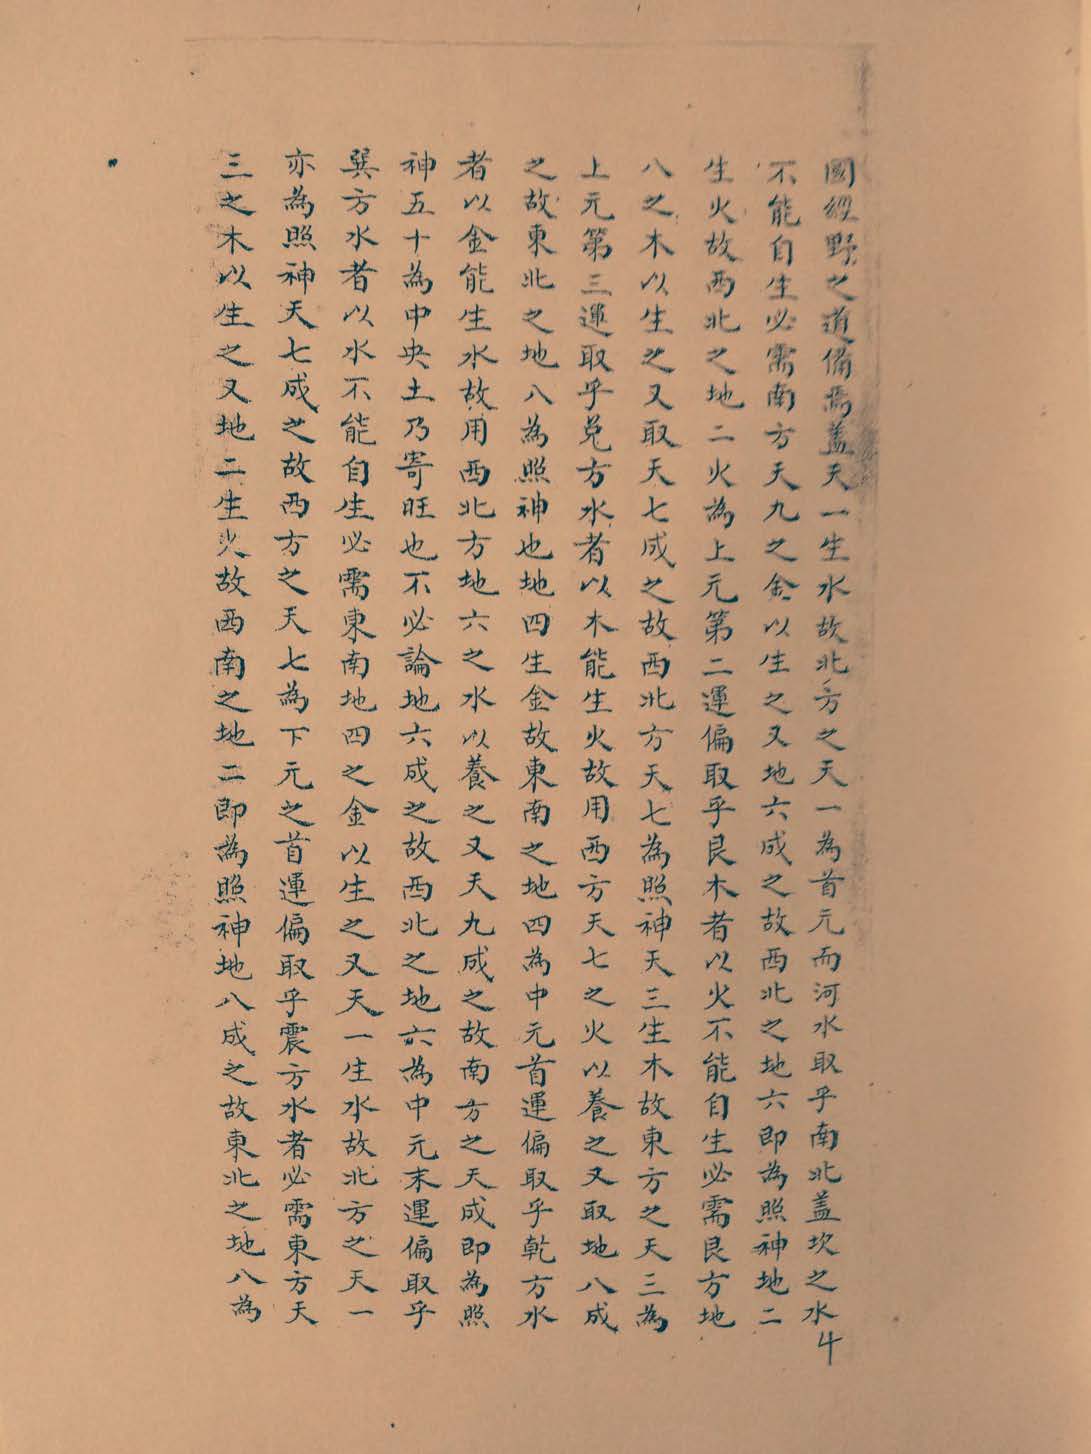 國經野之道備焉蓋天一生水故北方之天一為首元而河水取乎南北蓋坎之水
不能自生必需南方天九之金以生之又地六成之故西北之地六即為照神地二
生火故西北之地二火為上元第二運偏取乎艮木者以火不能自生必需艮方地
八之木以生之又取天七成之故西北方天七為照神天三生木故東方之天三為
上元第三運取乎兌方水者以木能生火故用西方天七之火以養之又取地八成
之故東北之地八為照神也地四生金故東南之地四為中元首運偏取乎乾方水
者以金能生水故用西北方地六之水以養之又天九成之故南方之天成即為照
神五十為中央土乃寄旺也不必論地六成之故西北之地六為中元末運偏取乎
巽方水者以水不能自生必需東南地四之金以生之又天一生水故北方之天一
亦為照神天七成之故西方之天七為下元之首運偏取乎震方水者必需東方天
三之木以生之又地二生火故西南之地二即為照神地八成之故東北之地八為